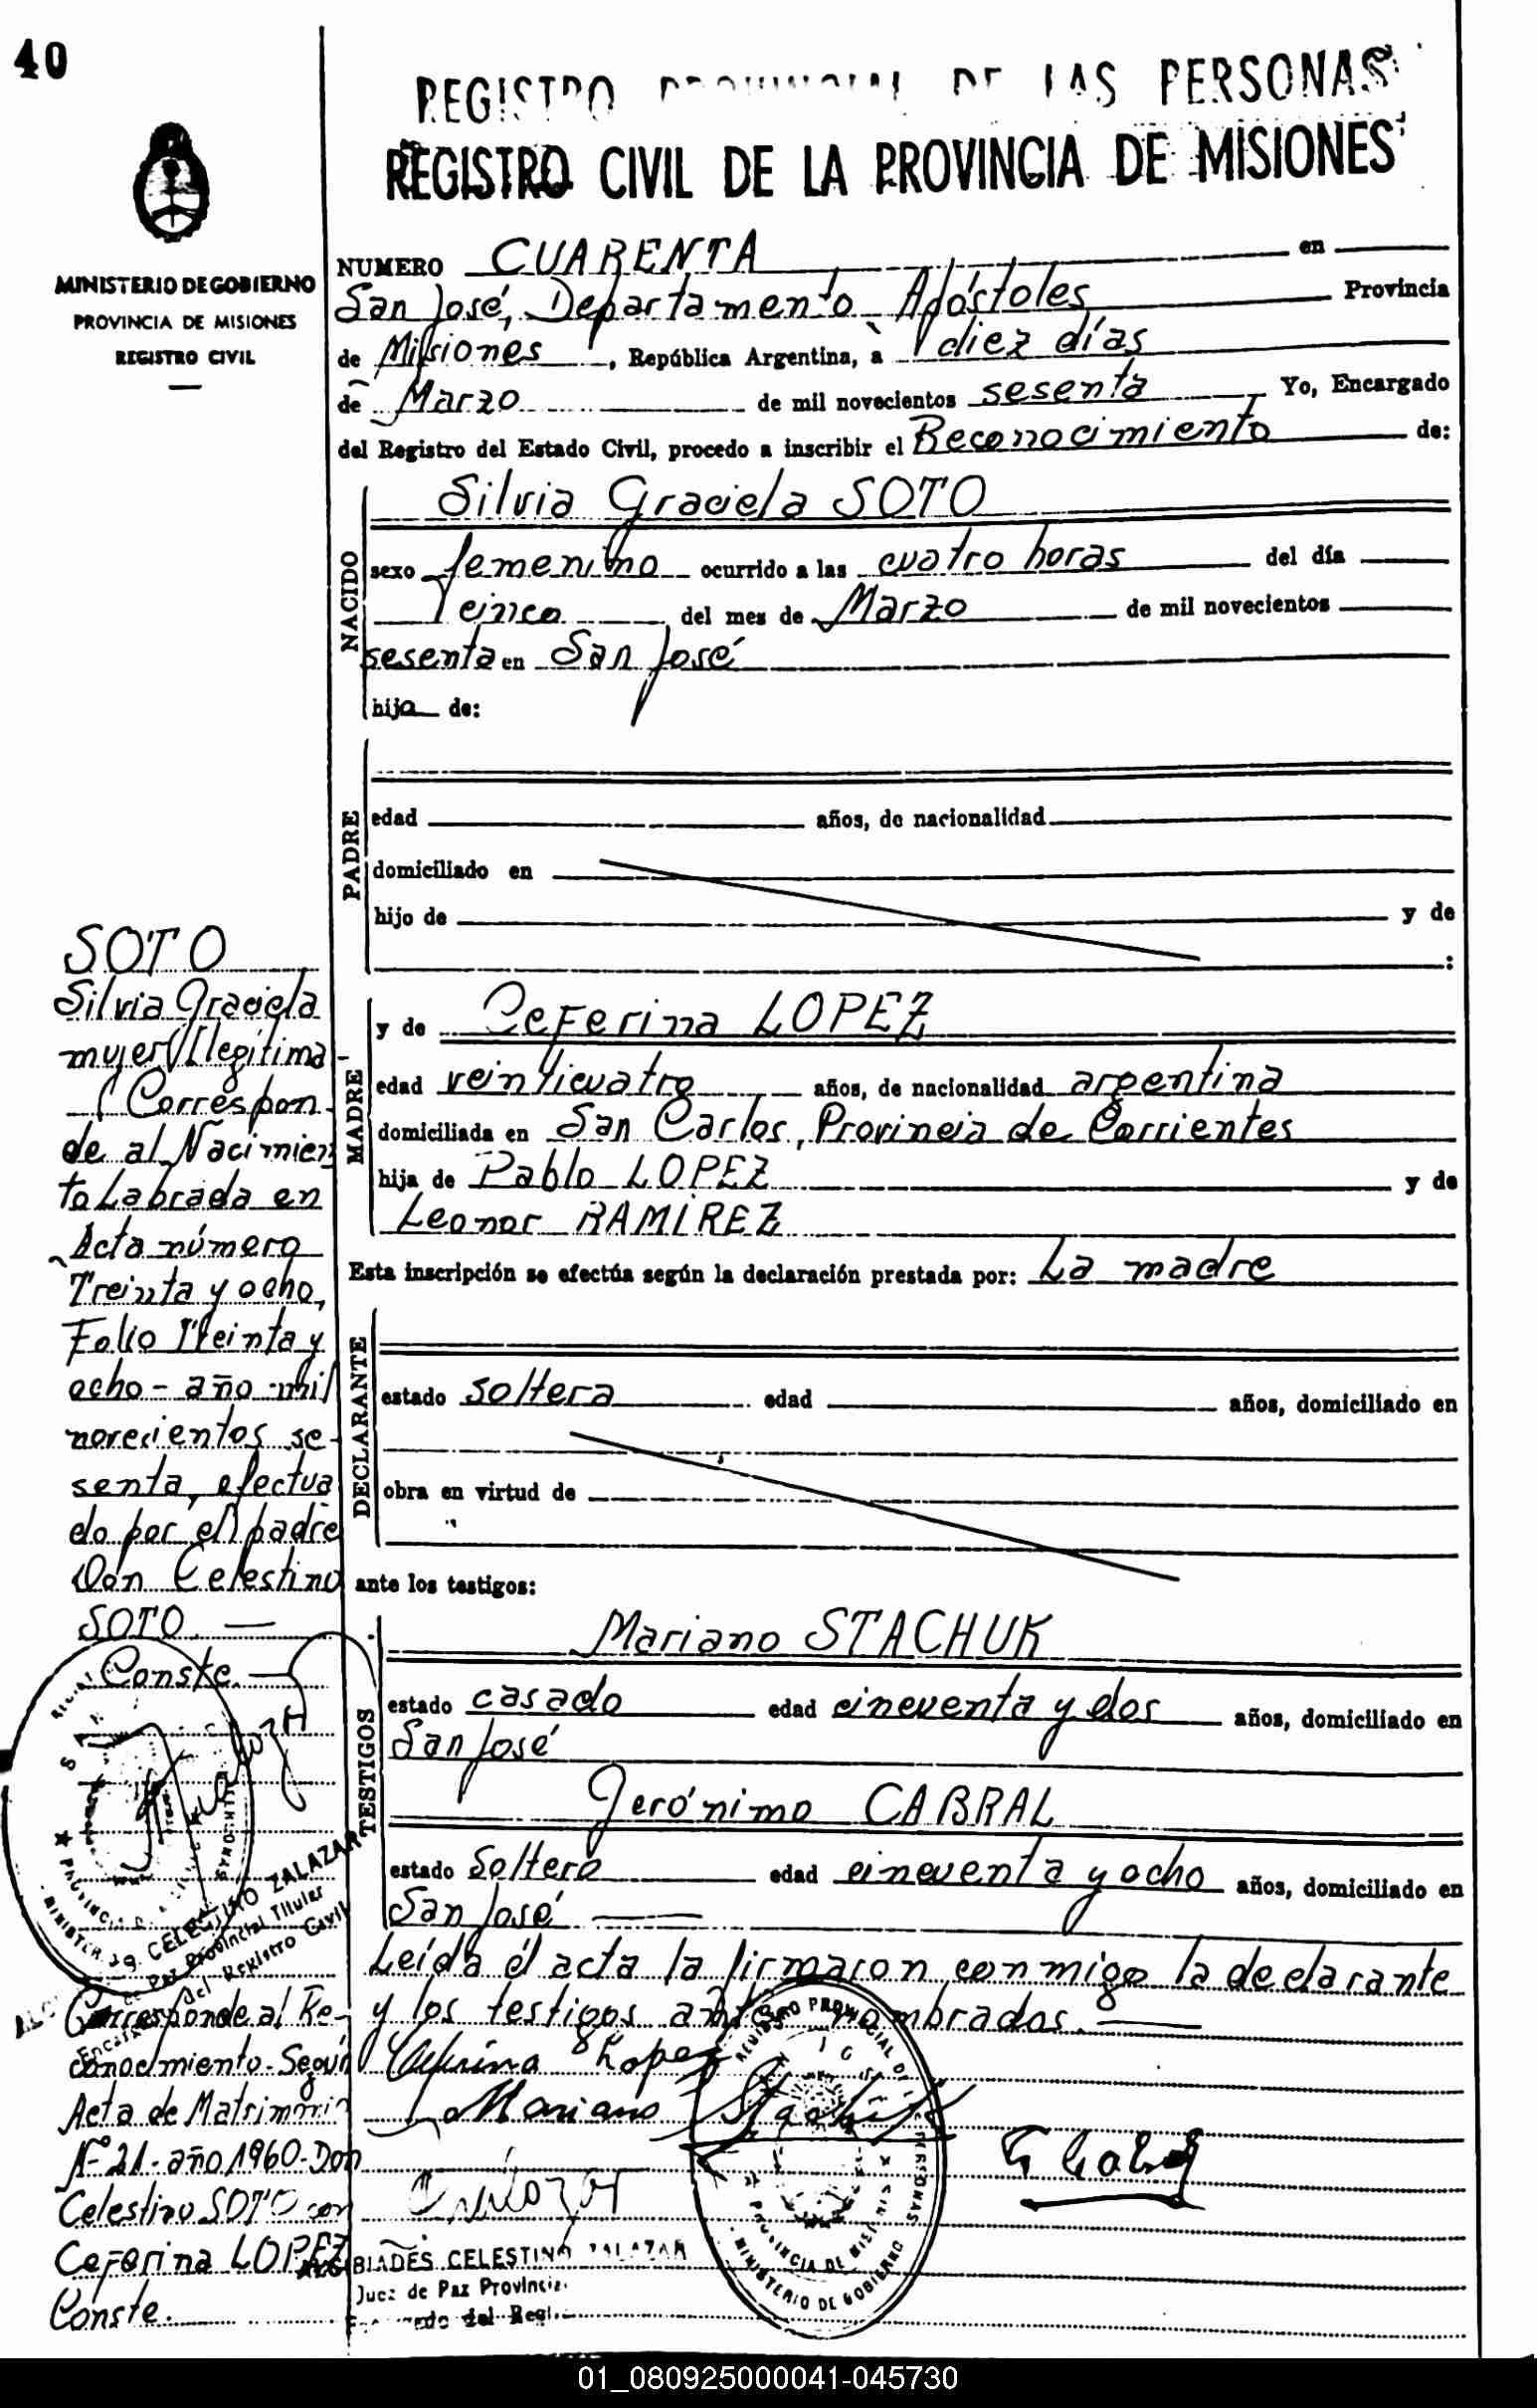 40
REGISTRO PROVINCIAL DE LAS PERSONAS
REGISTRO CIVIL DE LA PROVINCIA DE MISIONES
MINISTERIO DE GOBIERNO
PROVINCIA DE MISIONES
REGISTRO CIVIL
NUMERO CUARENTA en
San José, Departamento Apóstoles Provincia
de Misiones, República Argentina, a diez días
de Marzo de mil novecientos sesenta Yo, Encargado
del Registro del Estado Civil, procedo a inscribir el Reconocimiento de:
NACIDO
Silvia Graciela SOTO
sexo femenino ocurrido a las cuatro horas del día
cinco del mes de Marzo de mil novecientos
sesenta en San José
hija de:
PADRE
edad años, de nacionalidad
domiciliado en
hijo de y de
:
MADRE
y de Ceferina LOPEZ
edad veinticuatro años, de nacionalidad argentina
domiciliada en San Carlos, Provincia de Corrientes
hija de Pablo LOPEZ y de
Leonor RAMIREZ
Esta inscripción se efectúa según la declaración prestada por: La madre
DECLARANTE
estado soltera edad años, domiciliado en
obra en virtud de
ante los testigos:
TESTIGOS
Mariano STACHUK
estado casado edad cincuenta y dos años, domiciliado en
San José
Gerónimo CABRAL
estado Soltero edad cincuenta y ocho años, domiciliado en
San José
Leída el acta la firmaron conmigo la declarante
y los testigos antes nombrados.
Ceferina Lopez
Mariano Stachuk
BIADES CELESTINO ZALAZAR
Juez de Paz Provincial
del Regi
REGISTRO PROVINCIAL DE LAS PERSONAS
PROVINCIA DE MISIONES
MINISTERIO DE GOBIERNO
SOTO
Silvia Graciela
mujer Ilegítima
Correspon-
de al Nacimien
to Labrada en
Acta número
Treinta y ocho,
Folio Treinta y
ocho - año mil
novecientos se-
senta, efectua
do por el padre
Don Celestino
SOTO.
Conste.
CELESTINO ZALAZAR
de Paz Provincial Titular
Encargado del Registro Civil
Corresponde al Re-
conocimiento. Según
Acta de Matrimonio
Nº 21 - año 1960 - Don
Celestino SOTO con
Ceferina LOPEZ
Conste.
01_080925000041-045730